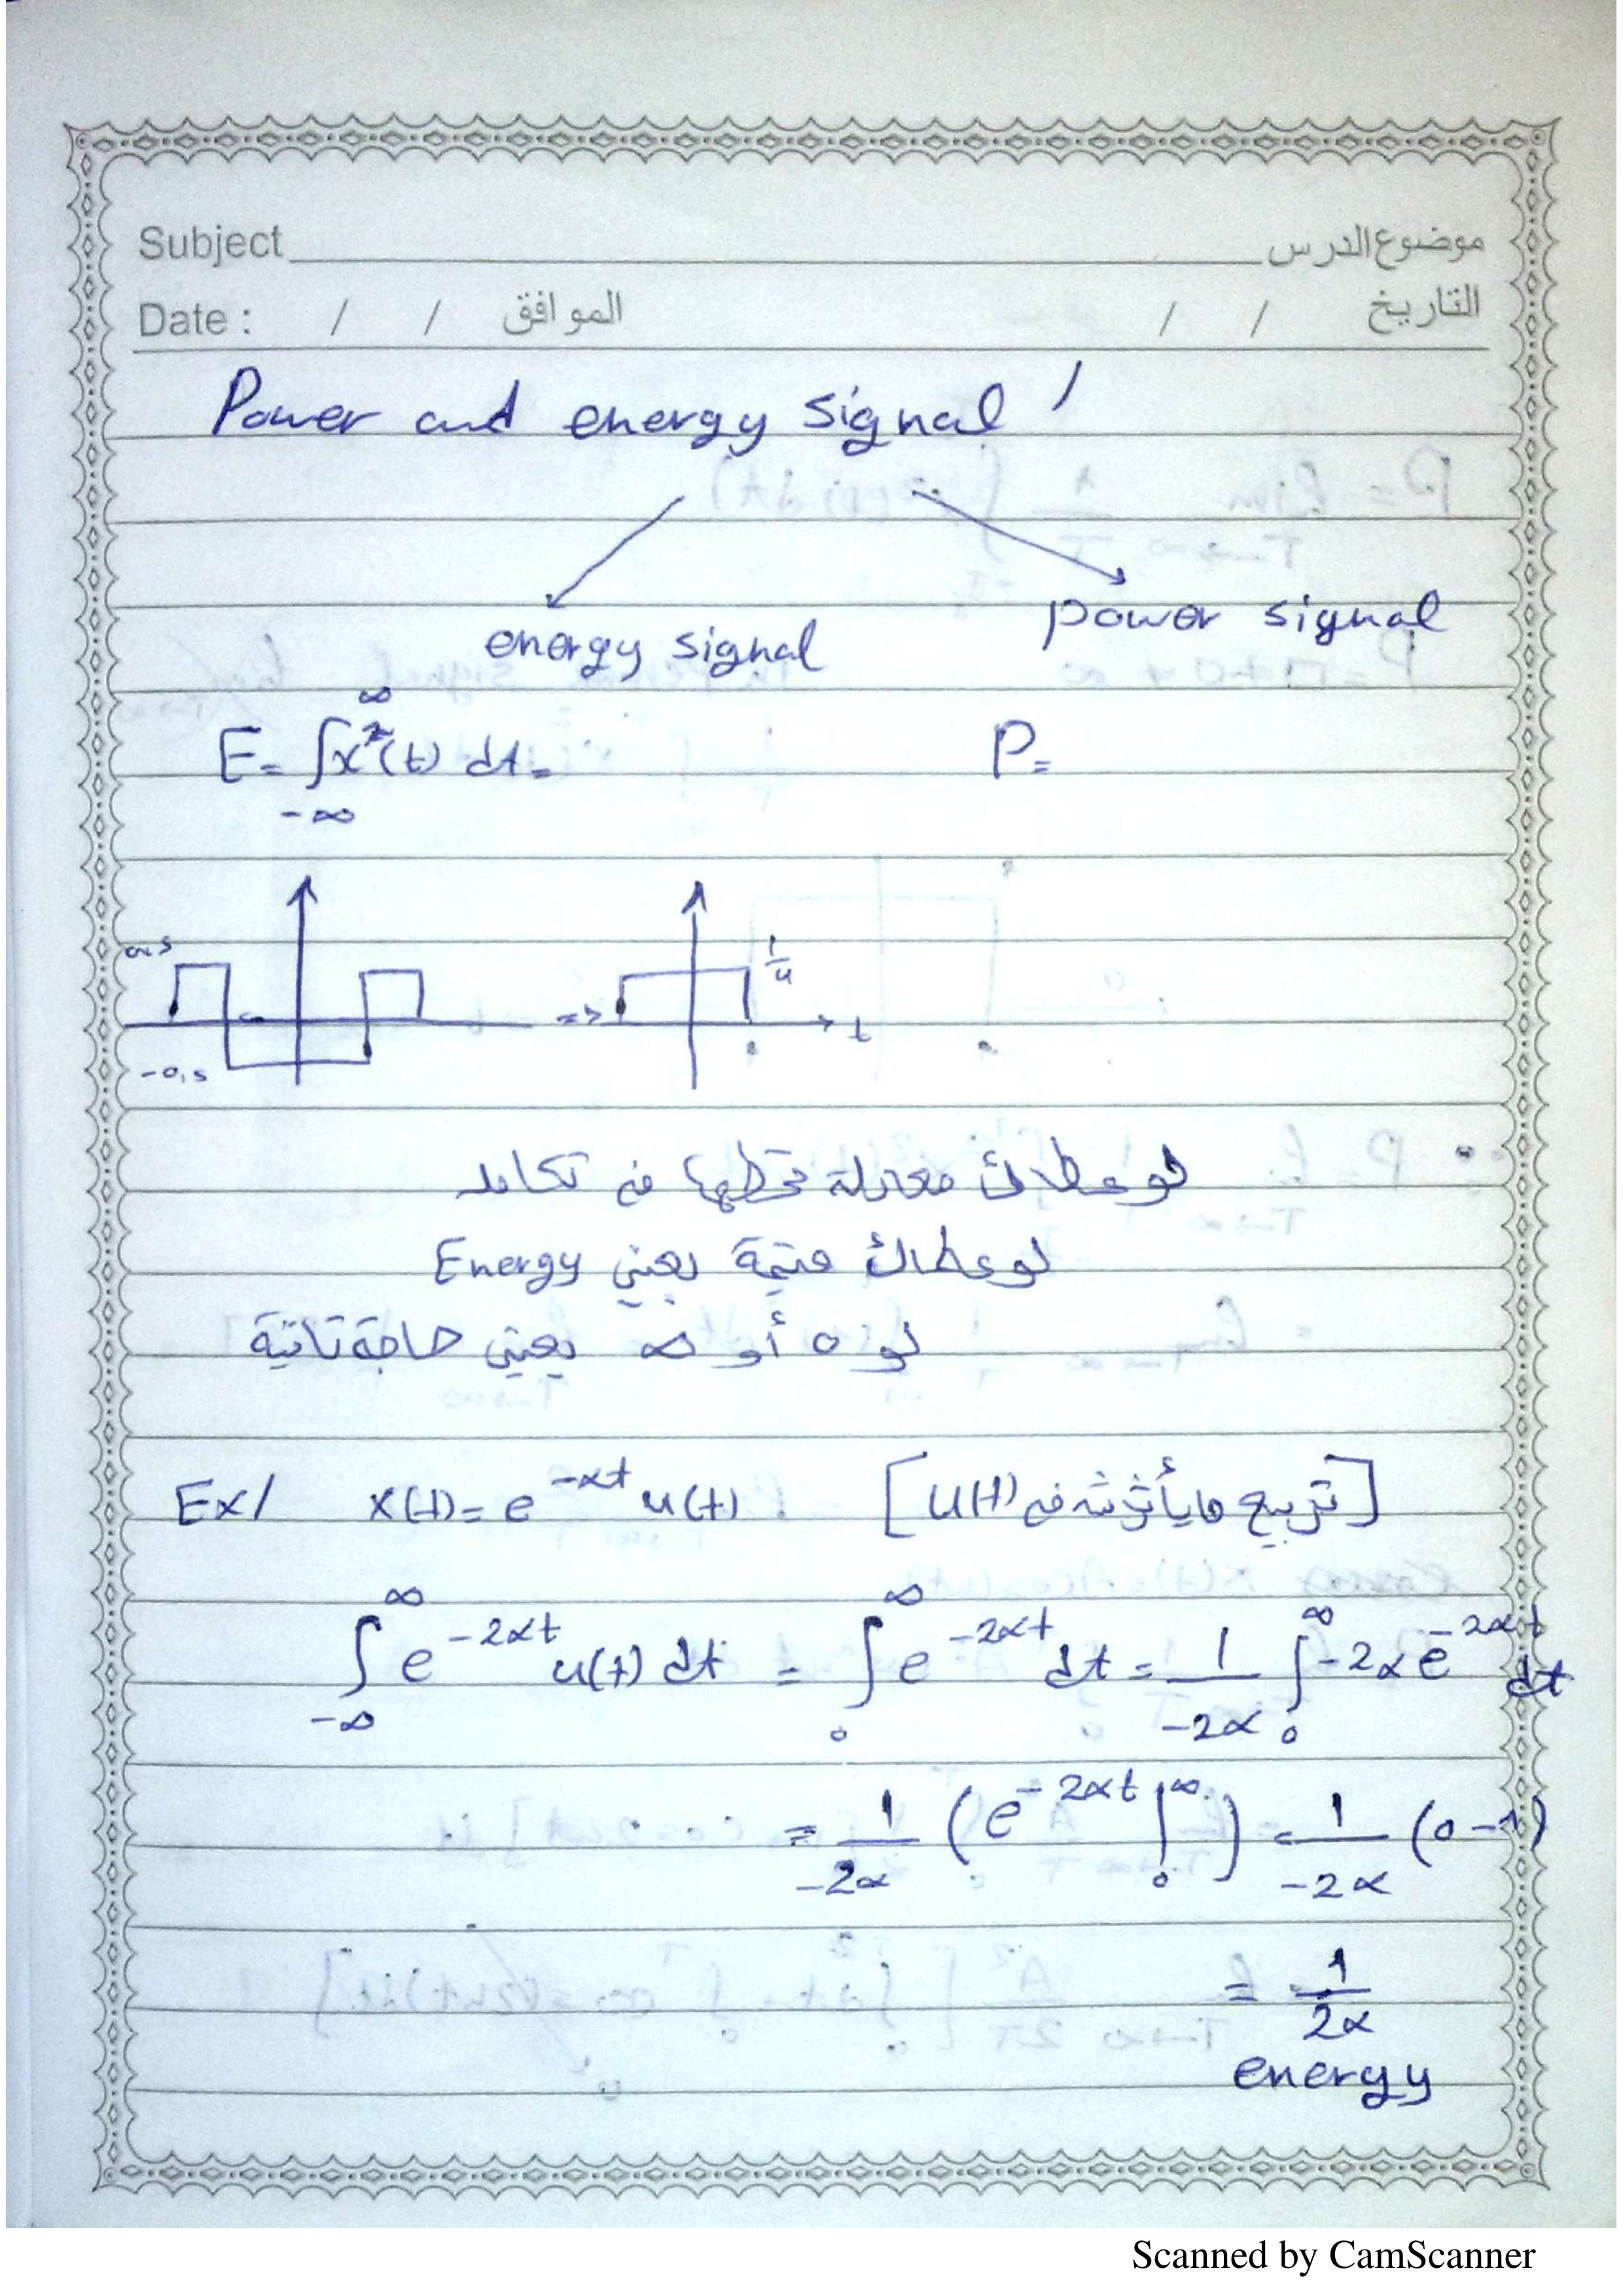 Subject موضوع الدرس
Date : / / الموافق / / التاريخ
Power and energy signal /
energy signal
power signal
E = ∫_{-∞}^{∞} x²(t) dt =
P =
0.5
-0.5
=>
1/4
t
لو عطاك معادلة تحطها في تكامل
لو عطاك قيمة يعني Energy
لو 0 أو ∞ يعني حاجة تانية
Ex/ x(t) = e^{-αt} u(t) [تربيع مايأثرش في u(t)]
∫_{-∞}^{∞} e^{-2αt} u(t) dt = ∫_{0}^{∞} e^{-2αt} dt = 1/-2α ∫_{0}^{∞} -2α e^{-2αt} dt
= 1/-2α (e^{-2αt} |_{0}^{∞}) = 1/-2α (0-1)
= 1/2α
energy
Scanned by CamScanner